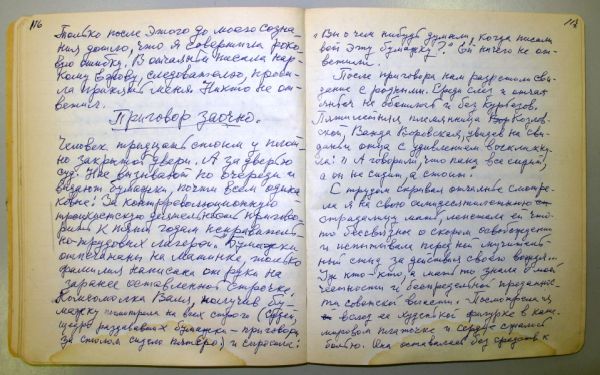 116
Только после этого до моего созна-
ния дошло, что я совершила роко-
вую ошибку. В отчаянии писала нар-
кому Ежову, следователю, проси-
ла принять меня. Никто не от-
ветил.
Приговор заочно.
Человек тридцать стоим у плот-
но закрытой двери. А за дверью
суд. Нас вызывают по очереди и
выдают бумажки, почти всем одина-
ковые: За контрреволюционную
троцкистскую деятельность пригово-
рить к пяти годам исправитель
но-трудовых лагерей. Бумажки
отпечатаны на машинке, только
фамилия написана от руки на
заранее оставленной строчке.
Комсомолка Валя, получив бу-
мажку посмотрела на всех строго (судей,
щедро раздававших бумажки - приговоры
за столом сидело пятеро) и спросила:
117
"Вы о чем нибудь думали, когда писали
вот эту бумажку?" Ей ничего не от-
ветили.
После приговора нам разрешили сви-
дание с родными. Среди слез и отчая-
нья не обошлось и без курьезов.
Пятилетняя племянница
Вонда Воровская, увидев на сви-
дании отца с удивлением воскликну-
ла: "А говорили, что папа все сидит,
а он не сидит, а стоит."
С трудом скрывая отчаянье смотре-
ла я на свою семидесятилетнюю
страдалицу мать, лепетала ей что-
то бессвязное о скором освобождении
и испытывала перед ней мучитель-
ный стыд за действия своего вождя...
Уж кто-кто, а мать то знала о моей
честности и беспредельной преданнос-
ти советской власти. Посмотрела я
вслед ее худенькой фигурке в каше-
мировом платочке и сердце сжалось
болью. Она оставалась без средств к